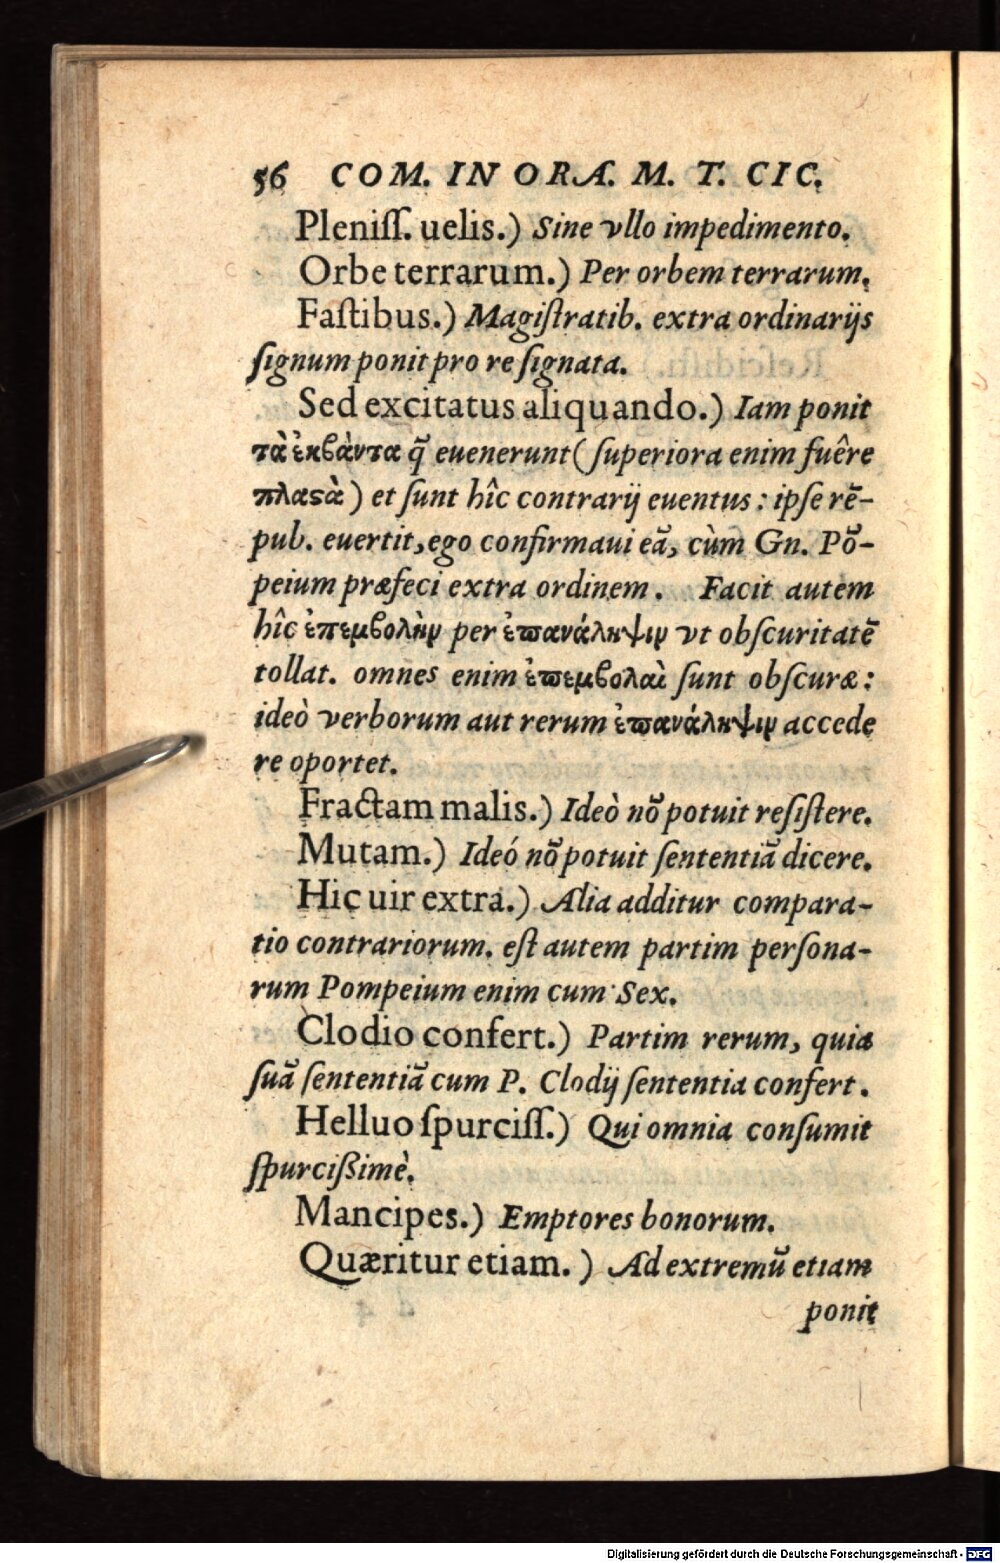 56 COM. IN ORA. M. T. CIC.
Pleniſſ. uelis.) Sine vllo impedimento.
Orbe terrarum.) Per orbem terrarum.
Faſtibus.) Magiſtratib. extra ordinarijs
ſignum ponit pro re ſignata.
Sed excitatus aliquando.) Iam ponit
τὰ ἐκβάντα q̃ euenerunt (ſuperiora enim fuêre
πλαϛὰ) et ſunt hîc contrarij euentus: ipſe rē-
pub. euertit, ego confirmaui eā, cùm Gn. Pō-
peium præfeci extra ordinem. Facit autem
hîc ἐπεμβολὴν per ἐπανάληψιν vt obſcuritatē
tollat. omnes enim ἐπεμβολαὶ ſunt obſcuræ:
ideò verborum aut rerum ἐπανάληψιν accede
re oportet.
Fractam malis.) Ideò nō potuit reſiſtere.
Mutam.) Ideó nō potuit ſententiā dicere.
Hic uir extra.) Alia additur compara-
tio contrariorum. eſt autem partim perſona-
rum Pompeium enim cum Sex.
Clodio confert.) Partim rerum, quia
ſuā ſententiā cum P. Clodij ſententia confert.
Helluo ſpurciſſ.) Qui omnia conſumit
ſpurcißimè.
Mancipes.) Emptores bonorum.
Quæritur etiam.) Ad extremū etiam
ponit
Digitalisierung gefördert durch die Deutsche Forschungsgemeinschaft - DFG